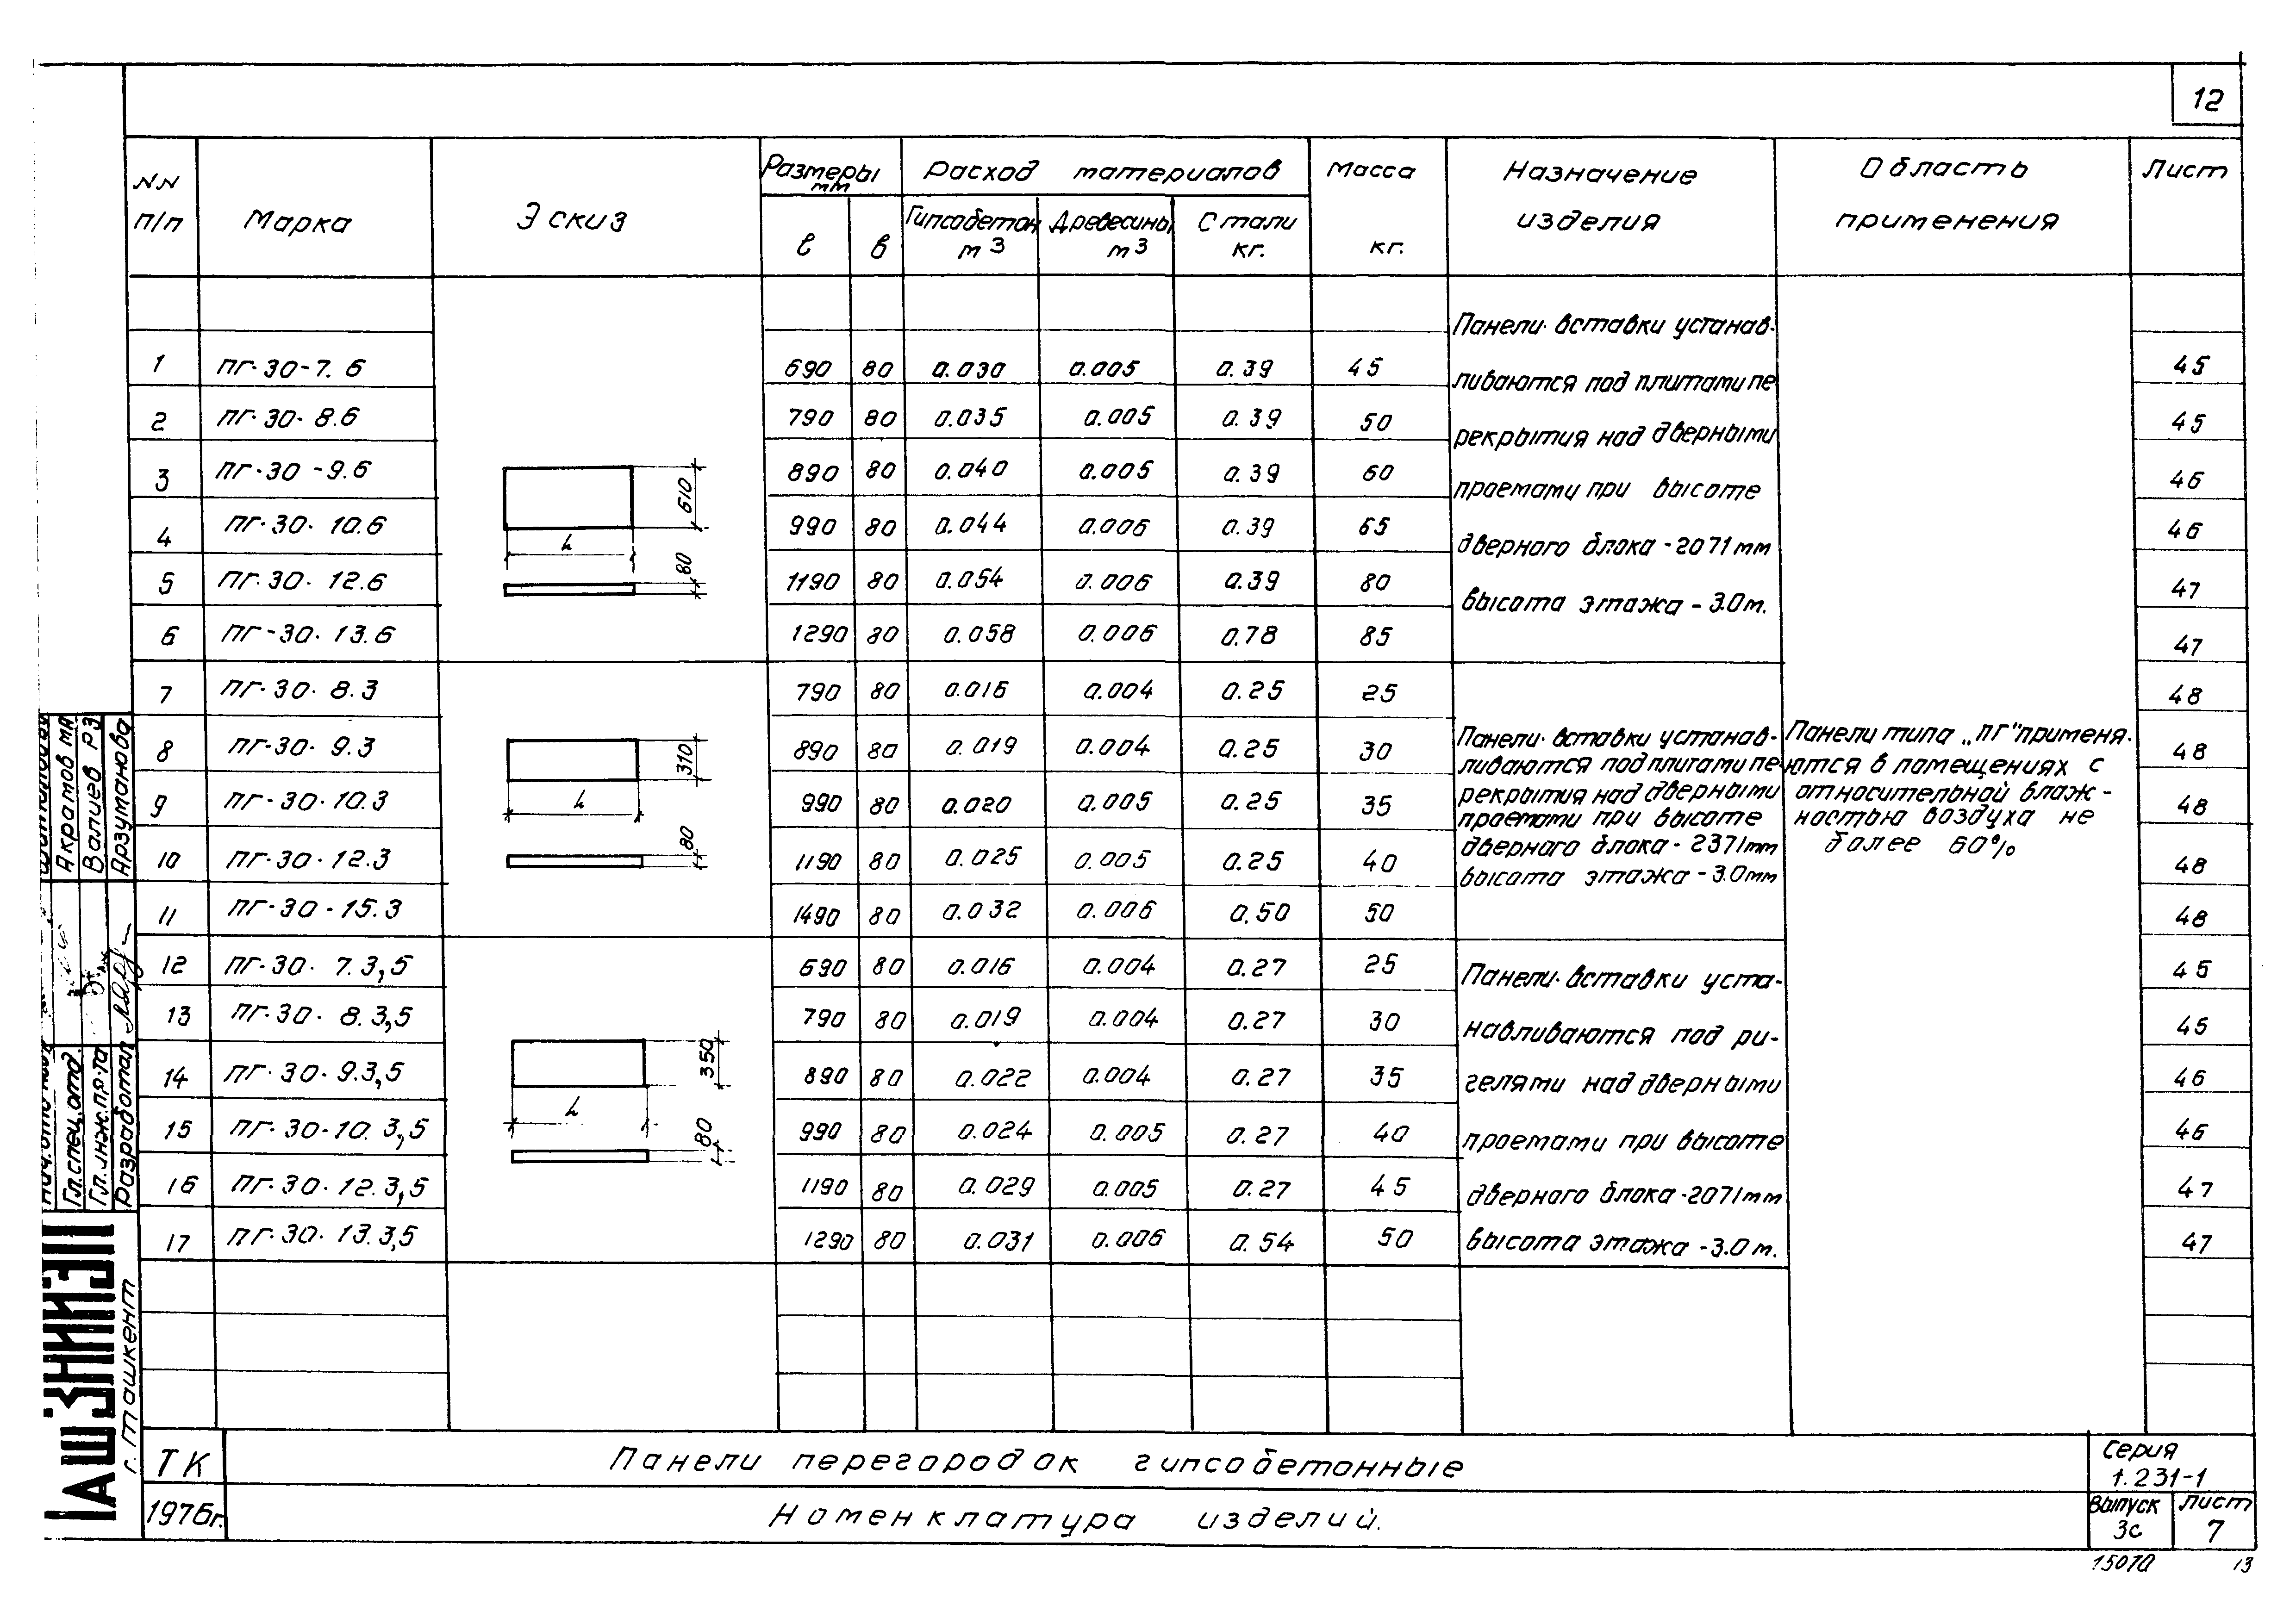 12
NN п/п Марка Эскиз Размеры мм Расход материалов Масса кг. Назначение изделия Область применения Лист
ℓ в Гипсобетон м3 Древесины м3 Стали кг.
1 ПГ-30-7.6 690 80 0.030 0.005 0.39 45 45
2 ПГ-30-8.6 790 80 0.035 0.005 0.39 50 45
3 ПГ-30-9.6 890 80 0.040 0.005 0.39 60 46
4 ПГ-30-10.6 990 80 0.044 0.006 0.39 65 46
5 ПГ-30-12.6 1190 80 0.054 0.006 0.39 80 47
6 ПГ-30-13.6 1290 80 0.058 0.006 0.78 85 47
610
L
80
Панели-вставки устанав-
ливаются под плитами пе
рекрытия над дверными
проемами при высоте
дверного блока-2071мм
высота этажа-3.0м.
7 ПГ-30-8.3 790 80 0.016 0.004 0.25 25 48
8 ПГ-30-9.3 890 80 0.019 0.004 0.25 30 48
9 ПГ-30-10.3 990 80 0.020 0.005 0.25 35 48
10 ПГ-30-12.3 1190 80 0.025 0.005 0.25 40 48
11 ПГ-30-15.3 1490 80 0.032 0.006 0.50 50 48
310
L
80
Панели-вставки устанав-
ливаются под плитами пе-
рекрытия над дверными
проемами при высоте
дверного блока-2371мм
высота этажа-3.0мм
Панели типа „ПГ" применя-
ются в помещениях с
относительной влаж-
ностью воздуха не
более 60%
12 ПГ-30-7.3,5 690 80 0.016 0.004 0.27 25 45
13 ПГ-30-8.3,5 790 80 0.019 0.004 0.27 30 45
14 ПГ-30-9.3,5 890 80 0.022 0.004 0.27 35 46
15 ПГ-30-10.3,5 990 80 0.024 0.005 0.27 40 46
16 ПГ-30-12.3,5 1190 80 0.029 0.005 0.27 45 47
17 ПГ-30-13.3,5 1290 80 0.031 0.006 0.54 50 47
350
L
80
Панели-вставки уста-
навливаются под ри-
гелями над дверными
проемами при высоте
дверного блока-2071мм
высота этажа-3.0м.
Акрамов МА
Валиев РЭ
Арзуманова
Гл.спец.отд.
Гл.инж.пр-та
Разработал
г. Ташкент
ТК
1976г.
Панели перегородок гипсобетонные
Номенклатура изделий.
Серия
1.231-1
Выпуск
3с
Лист
7
15070 13